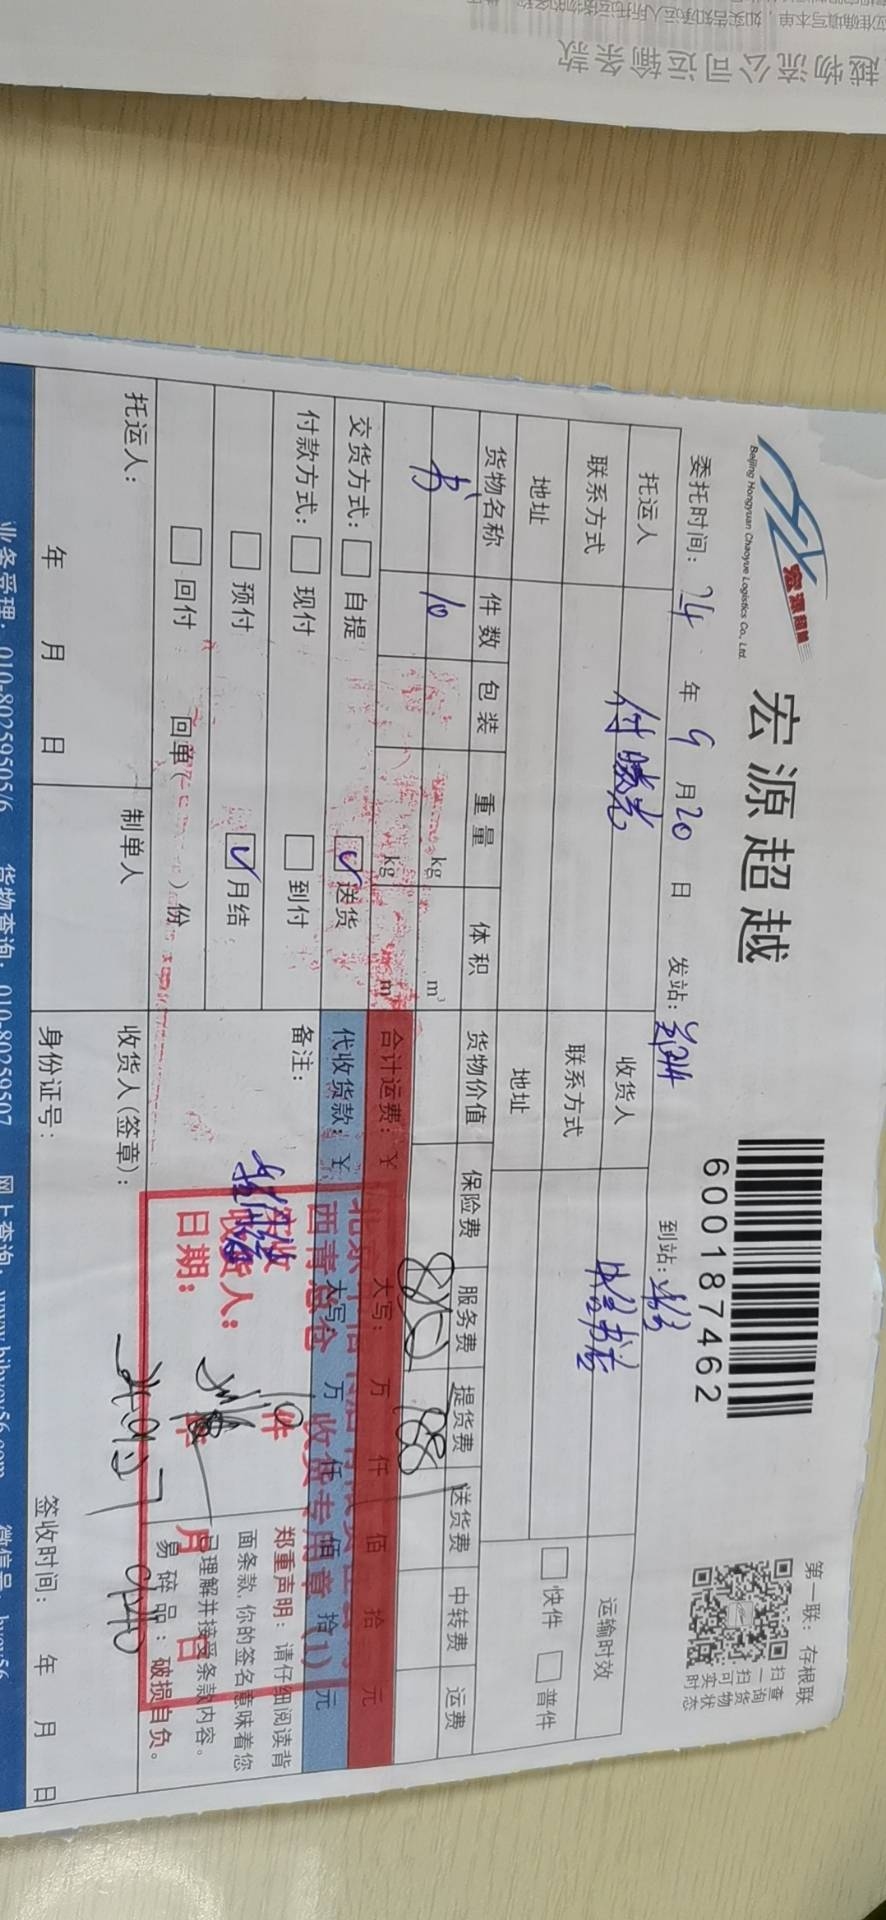 越物流公司运输条款
宏源超越
Beijing Hongyuan Chaoyue Logistics Co., Ltd.
宏源超越
6001874 62
第一联：存根联
扫一扫可实时
查询货物状态
委托时间：24年9月20日 发站：郑州 到站：
托运人 付晓光 收货人
运输时效
联系方式 联系方式
快件 普件
地址 地址
货物名称 件数 包装 重量 体积 货物价值 保险费 服务费 提货费 送货费 中转费 运费
书 10 kg m³
kg m³ 合计运费：¥ 大写： 万 仟 佰 拾 元
交货方式： 自提 送货 代收货款：¥ 大写： 万 仟 佰 拾 元
付款方式： 现付 到付 备注：
预付 月结
回付 回单( )份
郑重声明：请仔细阅读背
面条款，你的签名意味着您
已理解并接受条款内容。
易碎品：破损自负。
西青总仓 收货专用章（1）
实收 10 件
收货人：
日期： 年 月 日
托运人： 制单人 收货人(签章)：
年 月 日 身份证号： 签收时间： 年 月 日
业务受理：010-80259505/6 货物查询：010-80259507 网上查询：www.bjhycy56.com 微信号：hycy56